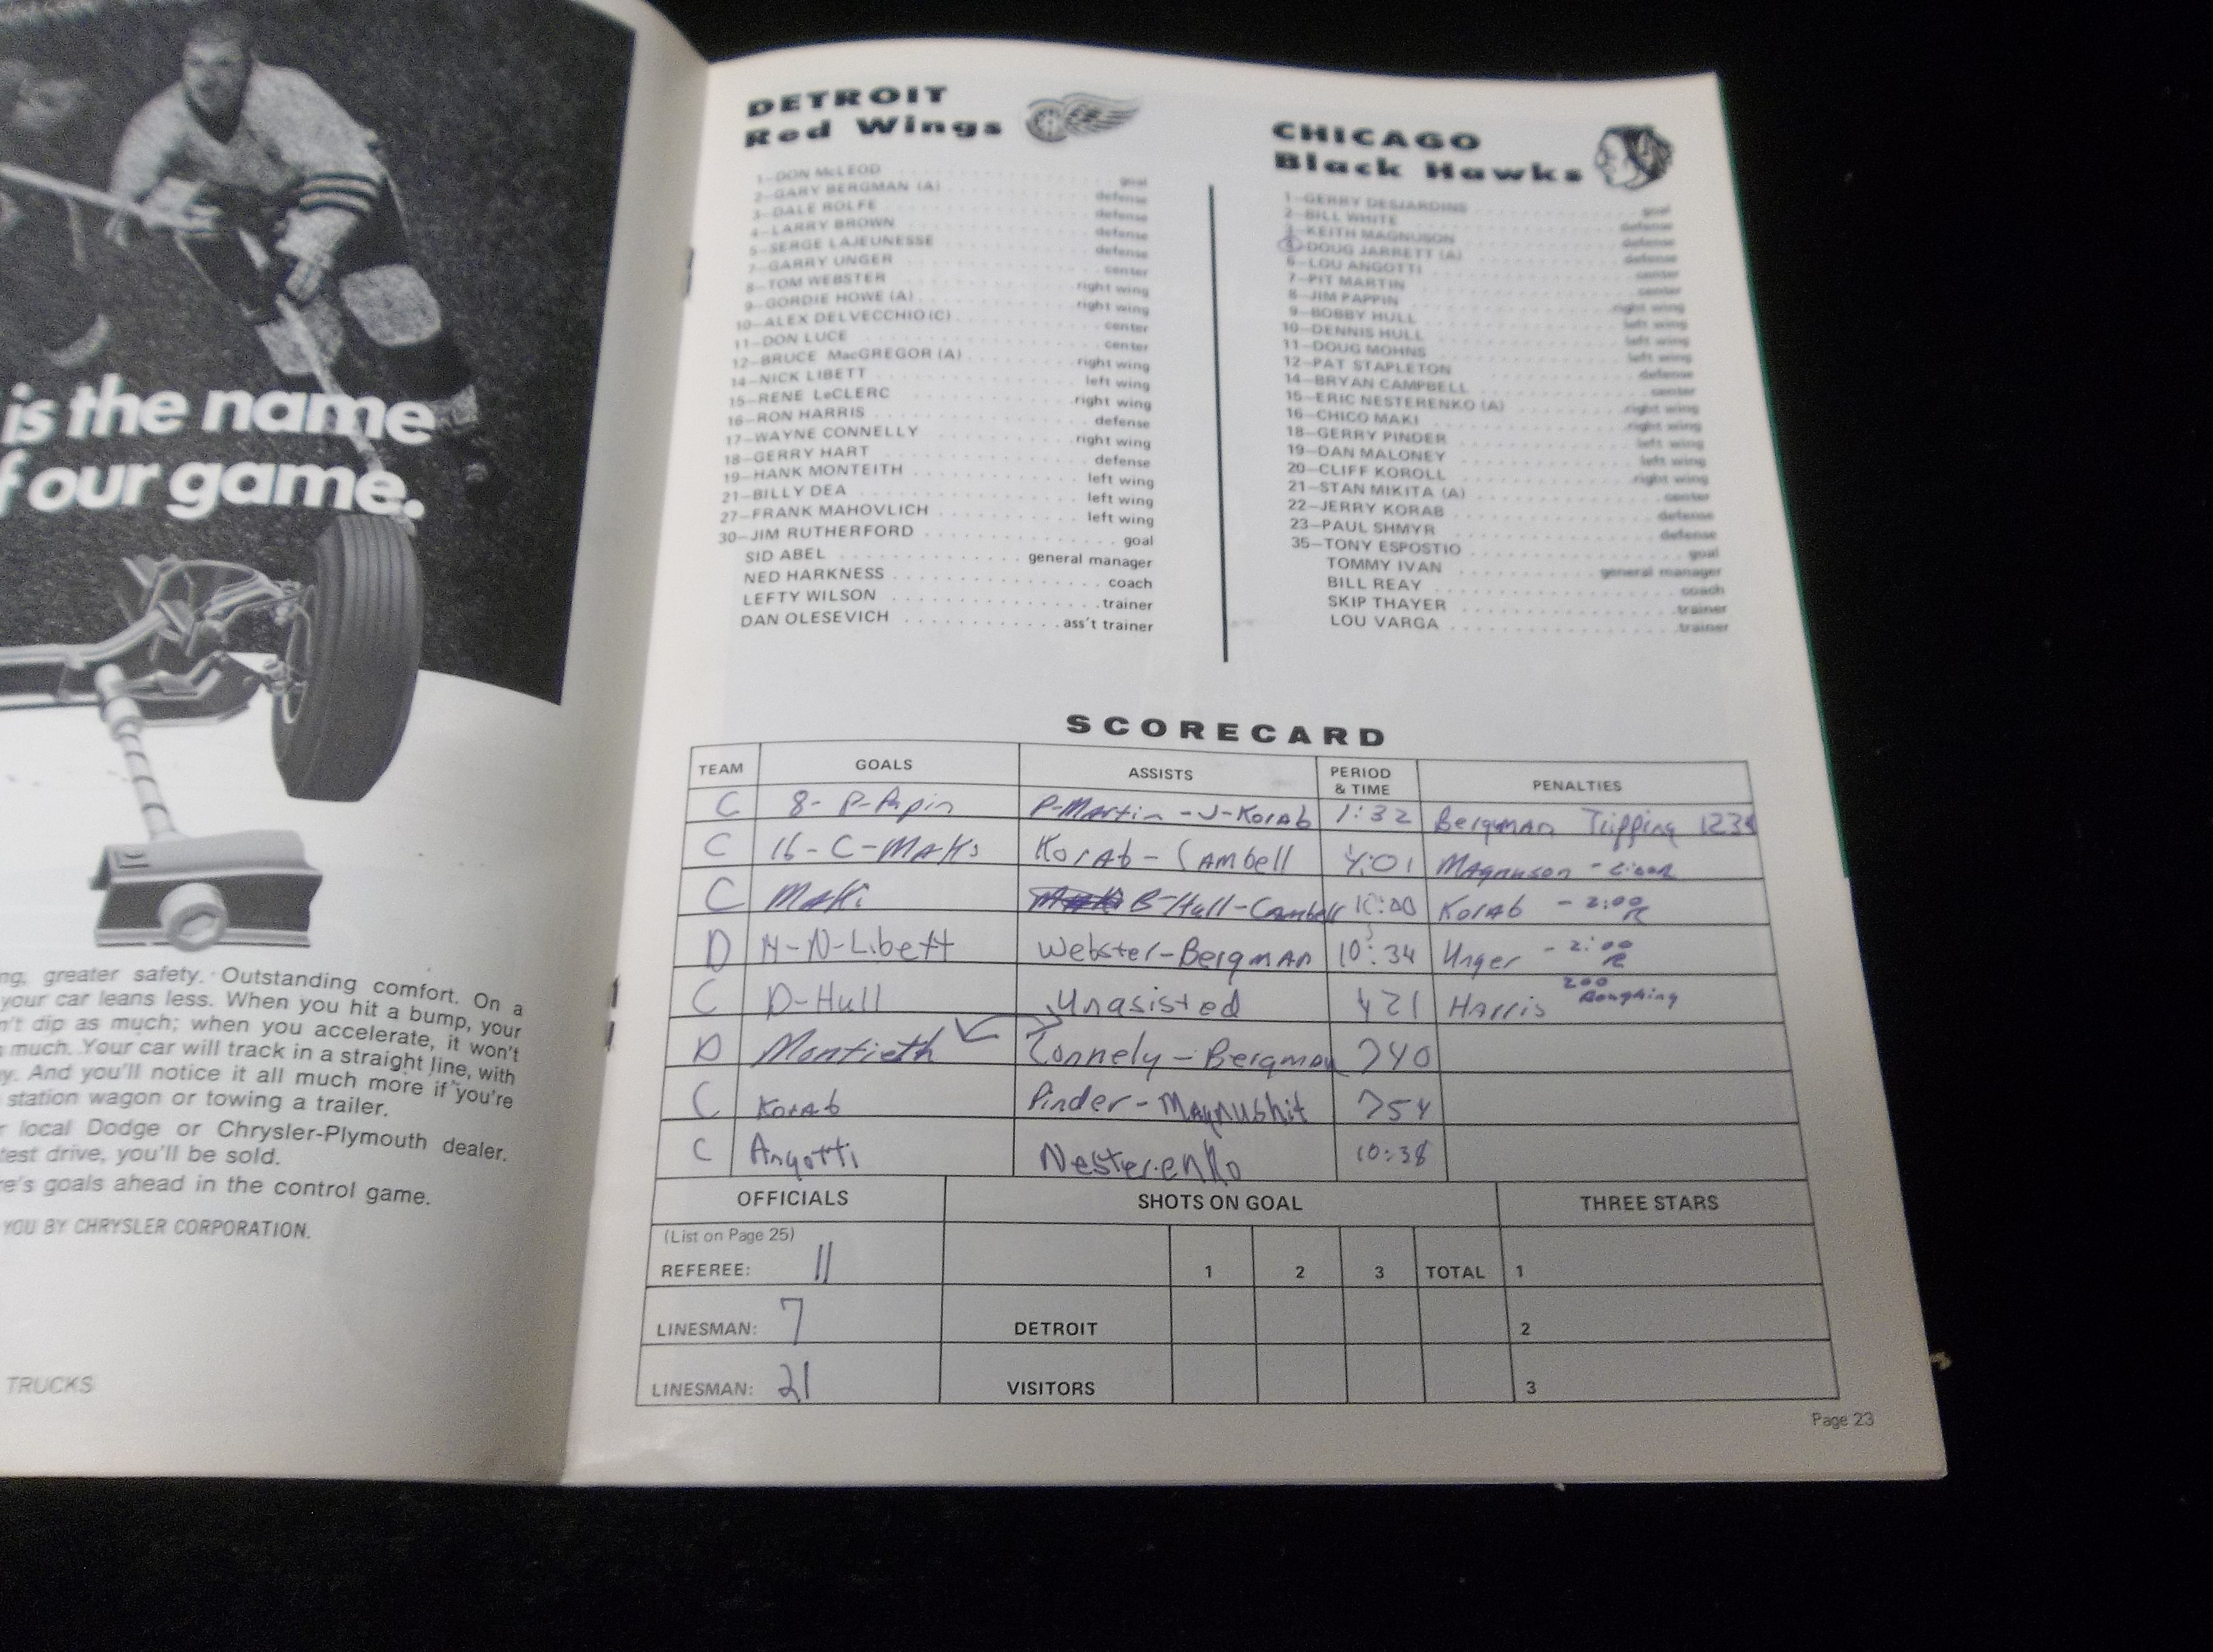 is the name
f our game.
ng, greater safety. Outstanding comfort. On a
your car leans less. When you hit a bump, your
n't dip as much; when you accelerate, it won't
much. Your car will track in a straight line, with
y. And you'll notice it all much more if you're
station wagon or towing a trailer.
r local Dodge or Chrysler-Plymouth dealer.
test drive, you'll be sold.
re's goals ahead in the control game.
YOU BY CHRYSLER CORPORATION.
TRUCKS
DETROIT
Red Wings
1-DON McLEOD goal
2-GARY BERGMAN (A) defense
3-DALE ROLFE defense
4-LARRY BROWN defense
5-SERGE LAJEUNESSE defense
7-GARRY UNGER center
8-TOM WEBSTER right wing
9-GORDIE HOWE (A) right wing
10-ALEX DELVECCHIO (C) center
11-DON LUCE center
12-BRUCE MacGREGOR (A) right wing
14-NICK LIBETT left wing
15-RENE LeCLERC right wing
16-RON HARRIS defense
17-WAYNE CONNELLY right wing
18-GERRY HART defense
19-HANK MONTEITH left wing
21-BILLY DEA left wing
27-FRANK MAHOVLICH left wing
30-JIM RUTHERFORD goal
SID ABEL general manager
NED HARKNESS coach
LEFTY WILSON trainer
DAN OLESEVICH ass't trainer
CHICAGO
Black Hawks
1-GERRY DESJARDINS goal
2-BILL WHITE defense
3-KEITH MAGNUSON defense
4-DOUG JARRETT (A) defense
6-LOU ANGOTTI center
7-PIT MARTIN center
8-JIM PAPPIN right wing
9-BOBBY HULL left wing
10-DENNIS HULL left wing
11-DOUG MOHNS left wing
12-PAT STAPLETON defense
14-BRYAN CAMPBELL center
15-ERIC NESTERENKO (A) right wing
16-CHICO MAKI right wing
18-GERRY PINDER left wing
19-DAN MALONEY left wing
20-CLIFF KOROLL right wing
21-STAN MIKITA (A) center
22-JERRY KORAB defense
23-PAUL SHMYR defense
35-TONY ESPOSTIO goal
TOMMY IVAN general manager
BILL REAY coach
SKIP THAYER trainer
LOU VARGA trainer
SCORECARD
TEAM GOALS ASSISTS PERIOD & TIME PENALTIES
C 8- P-Papin P-Martin - J-Korab 1:32 Bergman Tripping 1234
C 16- C-Maki Korab - Cambell 4:01 Magnuson -
C Maki B-Hull-Cambell Korab - 2:00
D N-Libett Webster-Bergman 10:34 Unger - 2:00
C D-Hull Unasisted 421 Harris 200 Roughing
D Montieth Connely - Bergman 740
C Korab Pinder - Magnushit 754
C Angotti Nesterenko 10:38
OFFICIALS SHOTS ON GOAL THREE STARS
(List on Page 25)
REFEREE: 11 1 2 3 TOTAL 1
LINESMAN: 7 DETROIT 2
LINESMAN: 21 VISITORS 3
Page 23